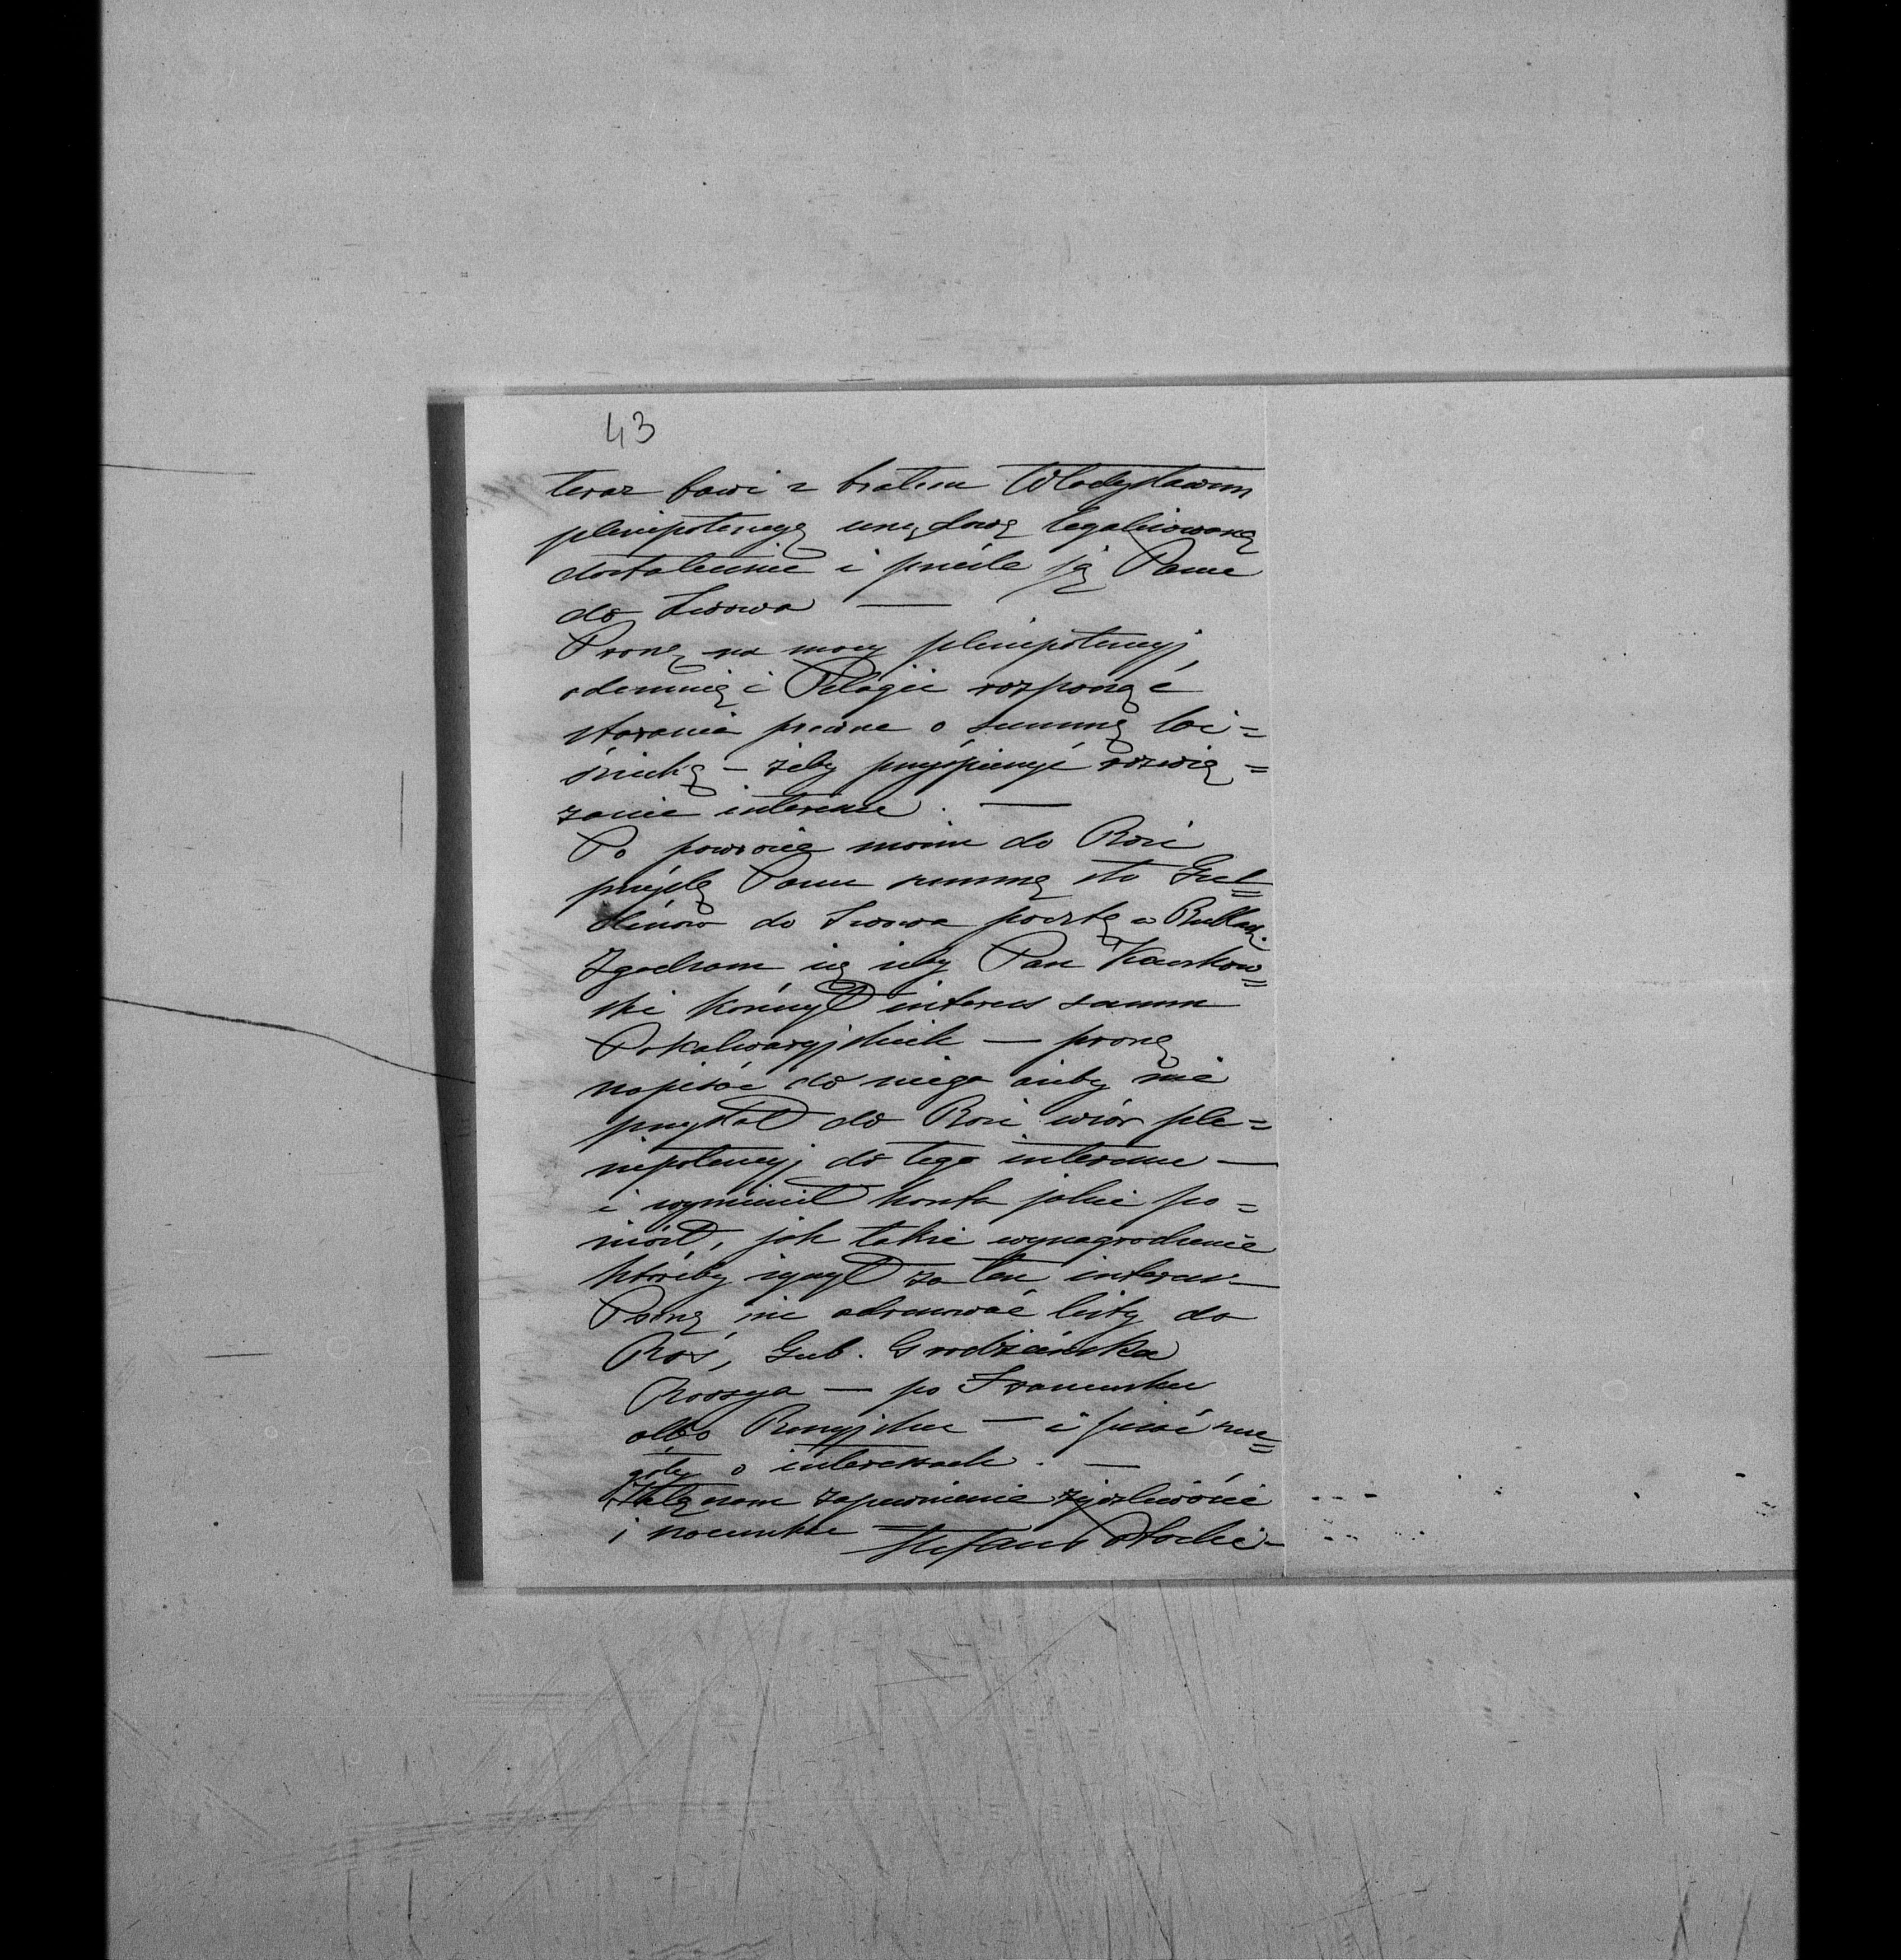 43
teraz bawi z bratem Władysławem
plenipotencyę urzędową legalizowaną
dostatecznie i prześle ją Panu
do Lwowa —
Proszę na mocy plenipotencyj
odemnię i Pelagii rozpocząć
starania prawne o summę
żeby przyśpieszyć rozwią=
zanie interesu. —
Po powrocie moim do Rosi
prześlę Panu summę sto Gul=
denów do Lwowa pocztą w
Zgadzam się żeby Pan
ski kończył interes summ
Pokalwaryjskich — proszę
napisać do niego ażeby mnie
przysłał do Rosi wzór ple=
nipotencyj do tego interesu —
i wymienił koszta jakie po=
niósł, jak także wynagrodzenie
któreby życzył za ten interes —
Proszę mnie adresować listy do
Roś, Gub. Grodzieńska
Rossya — po Francusku
albo Rossyjsku — i pisać
o interesach. —
zapewnienie życzliwości
i szacunku — Stefan Potocki —